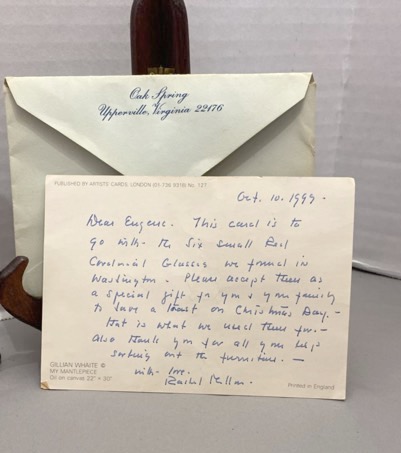 Oak Spring
Upperville, Virginia 22176
PUBLISHED BY ARTISTS' CARDS, LONDON (01-736 9319) No. 127
Oct. 10. 1999.
Dear Eugene. This card is to
go with the six small Red
Colonial Glasses we found in
Washington. Please accept these as
a special gift for you & your family
to have a toast on Christmas Day. -
that is what we used them for. -
Also thank you for all your help
sorting out the furniture. -
with love.
Rachel Mellon.
GILLIAN WHAITE ©
MY MANTLEPIECE
Oil on canvas 22" × 30"
Printed in England